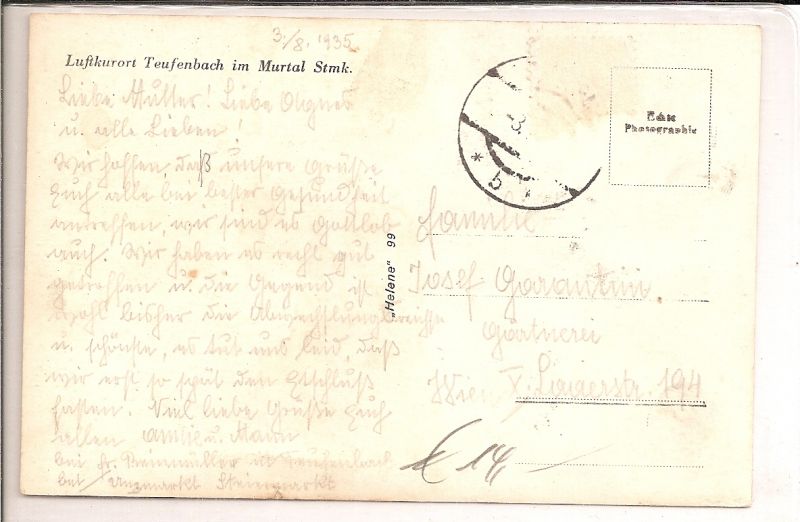 3./8. 1935
Luftkurort Teufenbach im Murtal Stmk.
Liebe Mutter! Liebe Agnes
u. alle Lieben!
Wir hoffen, daß unsere Grüße
Euch alle bei bester Gesundheit
antreffen, wir sind es Gottlob
auch. Wir haben es recht gut
getroffen u. die Gegend ist
wohl bisher die Abwechslungsreichste
u. schönste, es tut uns leid, daß
wir erst so spät den Etschluß
faßten. Viel liebe Grüße Euch
allen Amlie u. Mann
bei Fr. in Teufenbach
bei Unzmarkt Steiermark
„Helene" 99
3.
* b
Echte
Photographie
Familie
Josef Garantini
Gärtnerei
Wien X. 194
€ 14,